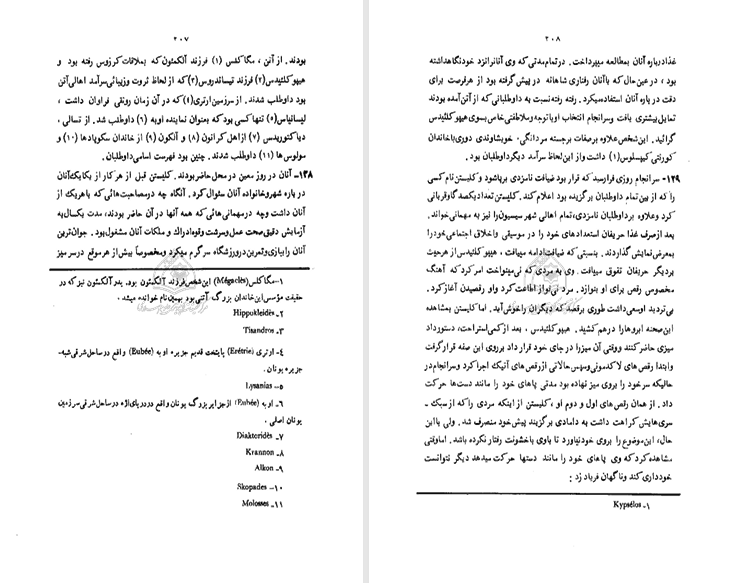 ۲۰۷
بودند. از آتن، مگاکلس (۱) فرزند آلکمئون که بملاقات کرزوس رفته بود و
هیپوکلئیدس (۲) فرزند تیساندروس (۳) که از لحاظ ثروت وزیبائی سرآمد اهالی آتن
بود داوطلب شدند. از سرزمین ارتری (٤) که در آن زمان رونقی فراوان داشت ،
لیسانیاس (٥) تنها کسی بود که بعنوان نماینده اوبه (٦) داوطلب شد. از تسالی ،
دیاکتوریدس (۷) از اهل کرانون (۸) و آلکون (۹) از خاندان سکوپادها (۱۰) و
مولوس‌ها (۱۱) داوطلب شدند. چنین بود فهرست اسامی داوطلبان.
۱۲۸- آنان در روز معین در محل حاضر بودند. کلیستن قبل از هر کار از یکایک آنان
در باره شهر و خانواده آنان سئوال کرد. آنگاه چه در مصاحبت‌هائی که با هر یک از
آنان داشت و چه در مهمانی‌هائی که همه آنها در آن حاضر بودند، مدت یکسال به
آزمایش دقیق صحت عمل و سرشت و قوه ادراک و ملکات آنان مشغول بود. جوان‌ترین
آنان را ببازی و تمرین در ورزشگاه سرگرم میکرد و مخصوصاً بیش از هر موقع در سر میز
۱- مگاکلس (Mégaclès) این شخص فرزند آلکمئون بود. پدر آلکمئون نیز که در
حقیقت مؤسس این خاندان بزرگ آتنی بود بهمین نام خوانده میشد.
۲- Hippokleidès
۳- Tisandros
٤- ارتری (Erétrie) پایتخت قدیم جزیره اوبه (Eubée) واقع در ساحل شرقی شبه-
جزیره یونان.
٥- Lysanias
٦- اوبه (Eubée) از جزایر بزرگ یونان واقع در دریای اژه در ساحل شرقی سرزمین
یونان اصلی .
۷- Diaktoridès
۸- Krannon
۹- Alkon
۱۰- Skopades
۱۱- Molosses
۲۰۸
غذا در باره آنان بمطالعه میپرداخت. در تمام مدتی که وی آنان را نزد خود نگاهداشته
بود ، در عین حال که با آنان رفتاری شاهانه در پیش گرفته بود از هر فرصت برای
دقت در باره آنان استفاده میکرد. رفته رفته نسبت به داوطلبانی که از آتن آمده بودند
تمایل بیشتری یافت و سرانجام انتخاب او با توجه و ملاطفتی خاص بسوی هیپوکلئیدس
گرائید. این شخص علاوه بر صفات برجسته مردانگی، خویشاوندی دوری با خاندان
کورنتی کیپسلوس (۱) داشت و از این لحاظ سرآمد دیگر داوطلبان بود.
۱۲۹- سرانجام روزی فرا رسید که قرار بود ضیافت نامزدی برپا شود و کلیستن نام کسی
را که از بین تمام داوطلبان برگزیده بود اعلام کند. کلیستن تعداد یکصد گاو قربانی
کرد و علاوه بر داوطلبان نامزدی، تمام اهالی شهر سیسیون را نیز به مهمانی خواند.
بعد از صرف غذا حریفان استعدادهای خود را در موسیقی و اخلاق اجتماعی خود را
بمعرض نمایش گذاردند. بنسبتی که ضیافت ادامه مییافت ، هیپوکلئیدس از هر حیث
بر دیگر حریفان تفوق مییافت. وی به مردی که نی مینواخت امر کرد که آهنگ
مخصوص رقص برای او بنوازد. مرد نی‌نواز اطاعت کرد و او رقصیدن آغاز کرد.
بی‌تردید او سعی داشت طوری برقصد که دیگران را خوش آید. اما کلیستن بمشاهده
این صحنه ابروها را درهم کشید. هیپوکلئیدس ، بعد از کمی استراحت، دستور داد
میزی حاضر کنند و وقتی آن میز را در جای خود قرار داد بر روی این صفه قرار گرفت
و ابتدا رقص‌های لاکدمونی و سپس حالاتی از رقص‌های آتیک اجرا کرد و سرانجام در
حالیکه سر خود را بروی میز نهاده بود مدتی پاهای خود را مانند دست‌ها حرکت
داد. از همان رقص‌های اول و دوم او ، کلیستن از اینکه مردی را که از سبک-
سری‌هایش کراهت داشت به دامادی برگزیند پیش خود منصرف شد. ولی با این
حال، این موضوع را بروی خود نیاورد تا با وی با خشونت رفتار نکرده باشد. اما وقتی
مشاهده کرد که وی پاهای خود را مانند دستها حرکت میدهد دیگر نتوانست
خودداری کند و ناگهان فریاد زد :
۱- Kypsélos